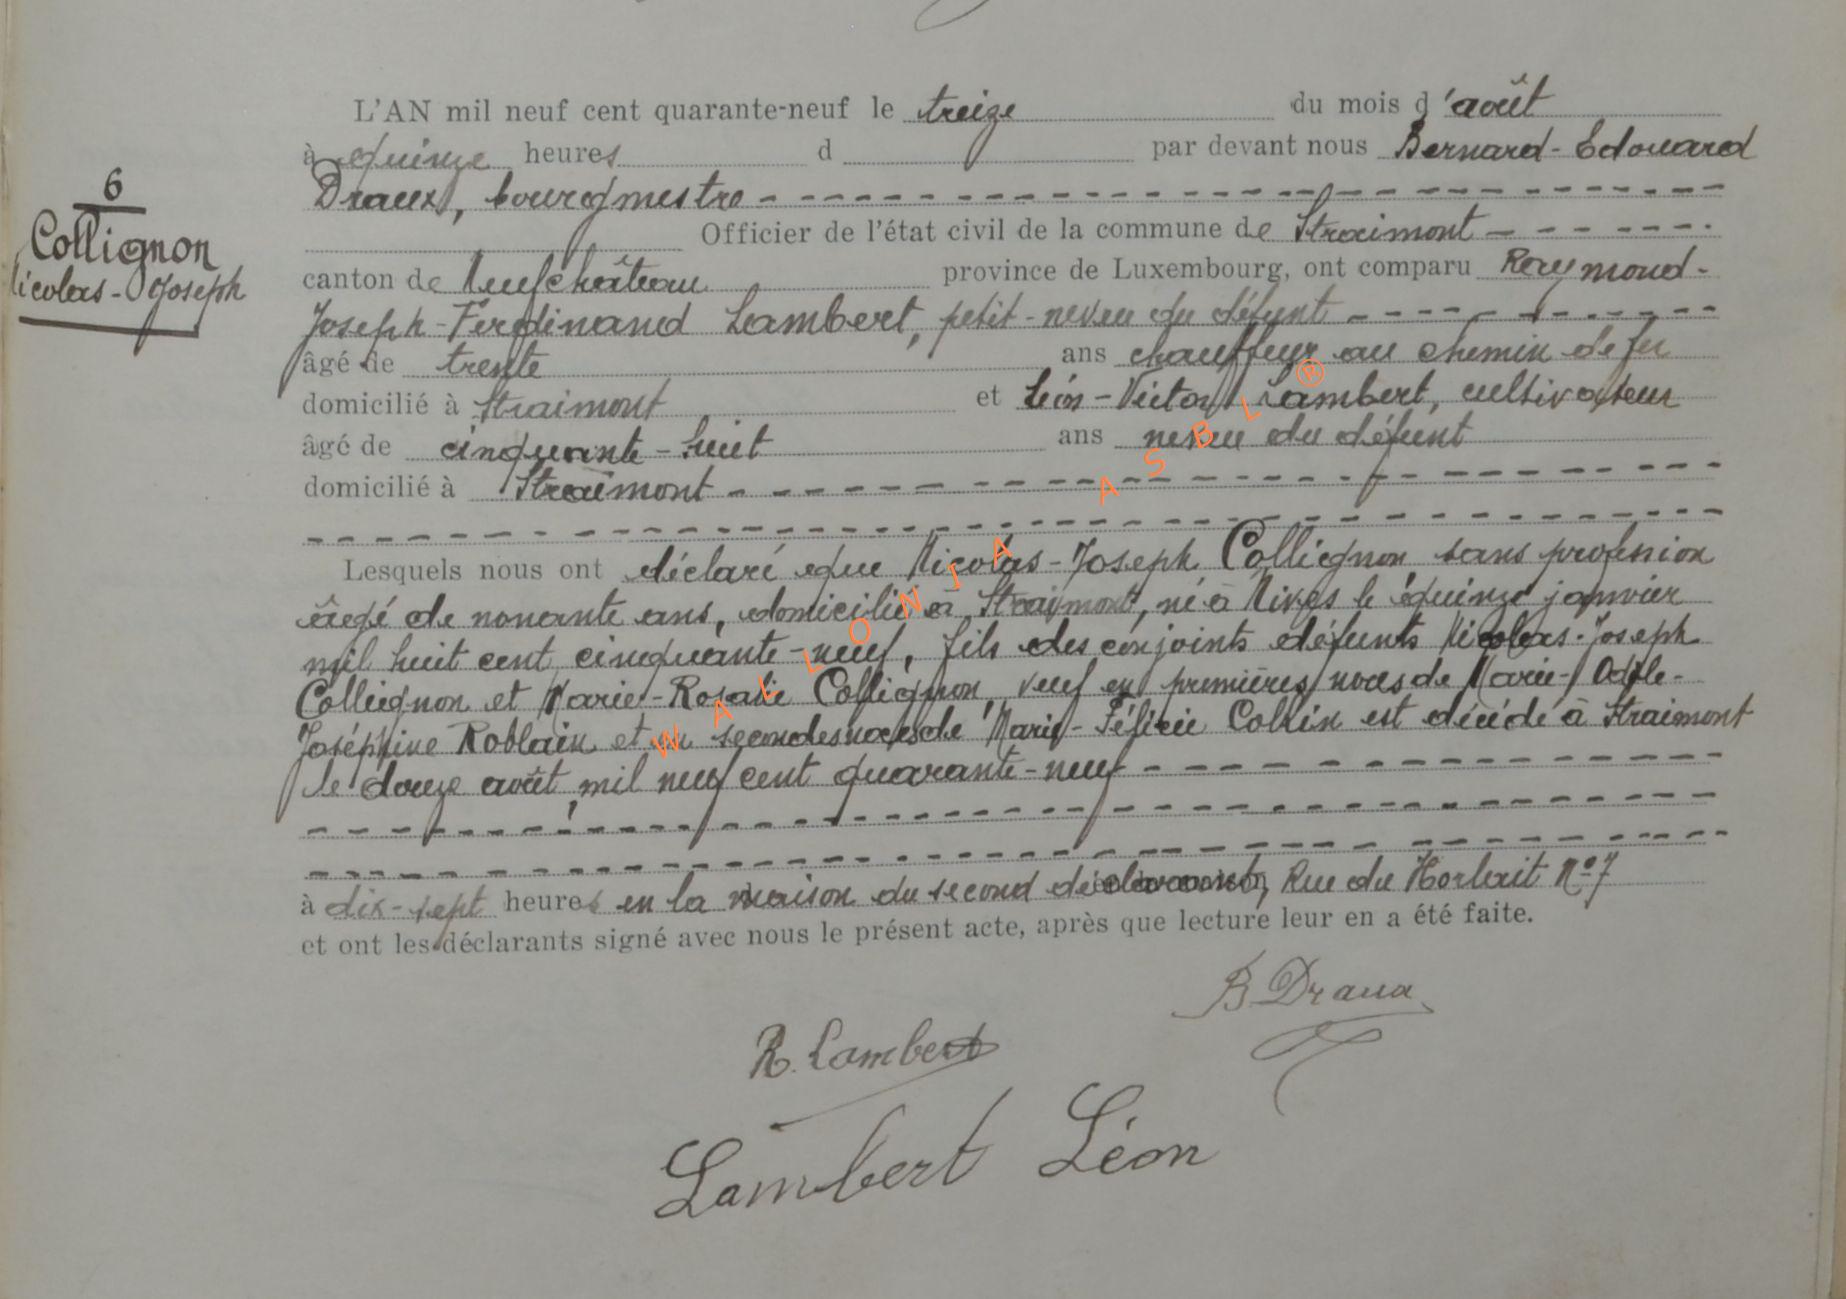 L'AN mil neuf cent quarante-neuf le treize du mois d'août
à quinze heures d par devant nous Bernard-Edouard
Draux, bourgmestre
Officier de l'état civil de la commune de Straimont
canton de Neufchâteau province de Luxembourg, ont comparu Raymond-
Joseph-Ferdinand Lambert, petit-neveu du défunt
âgé de trente ans chauffeur au chemin de fer
domicilié à Straimont et Léon-Victor Lambert, cultivateur
âgé de cinquante-huit ans neveu du défunt
domicilié à Straimont
6
Collignon
Nicolas-Joseph
Lesquels nous ont déclaré que Nicolas-Joseph Collignon sans profession
âgé de nonante ans, domicilié à Straimont, né à Nives le quinze janvier
mil huit cent cinquante-neuf, fils des conjoints défunts Nicolas-Joseph
Collignon et Marie-Rosalie Collignon, veuf en premières noces de Marie-Odile-
Joséphine Roblain et en secondes noces de Marie-Félicie Collin est décédé à Straimont
le douze août mil neuf cent quarante-neuf
à dix-sept heures en la maison du second déclarant, Rue du Horlait No 7
et ont les déclarants signé avec nous le présent acte, après que lecture leur en a été faite.
B Draux
R. Lambert
Lambert Léon
WALLONIA ASBL ®